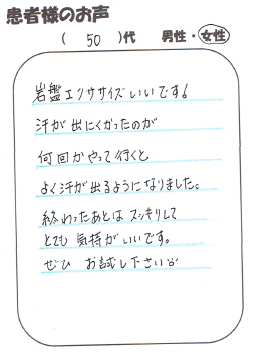 患者様のお声
( 50 )代 男性・女性
岩盤エクササイズいいです!
汗が出にくかったのが
何回かやって行くと
よく汗が出るようになりました。
終わったあとはスッキリして
とても気持がいいです。
ぜひ お試し下さい